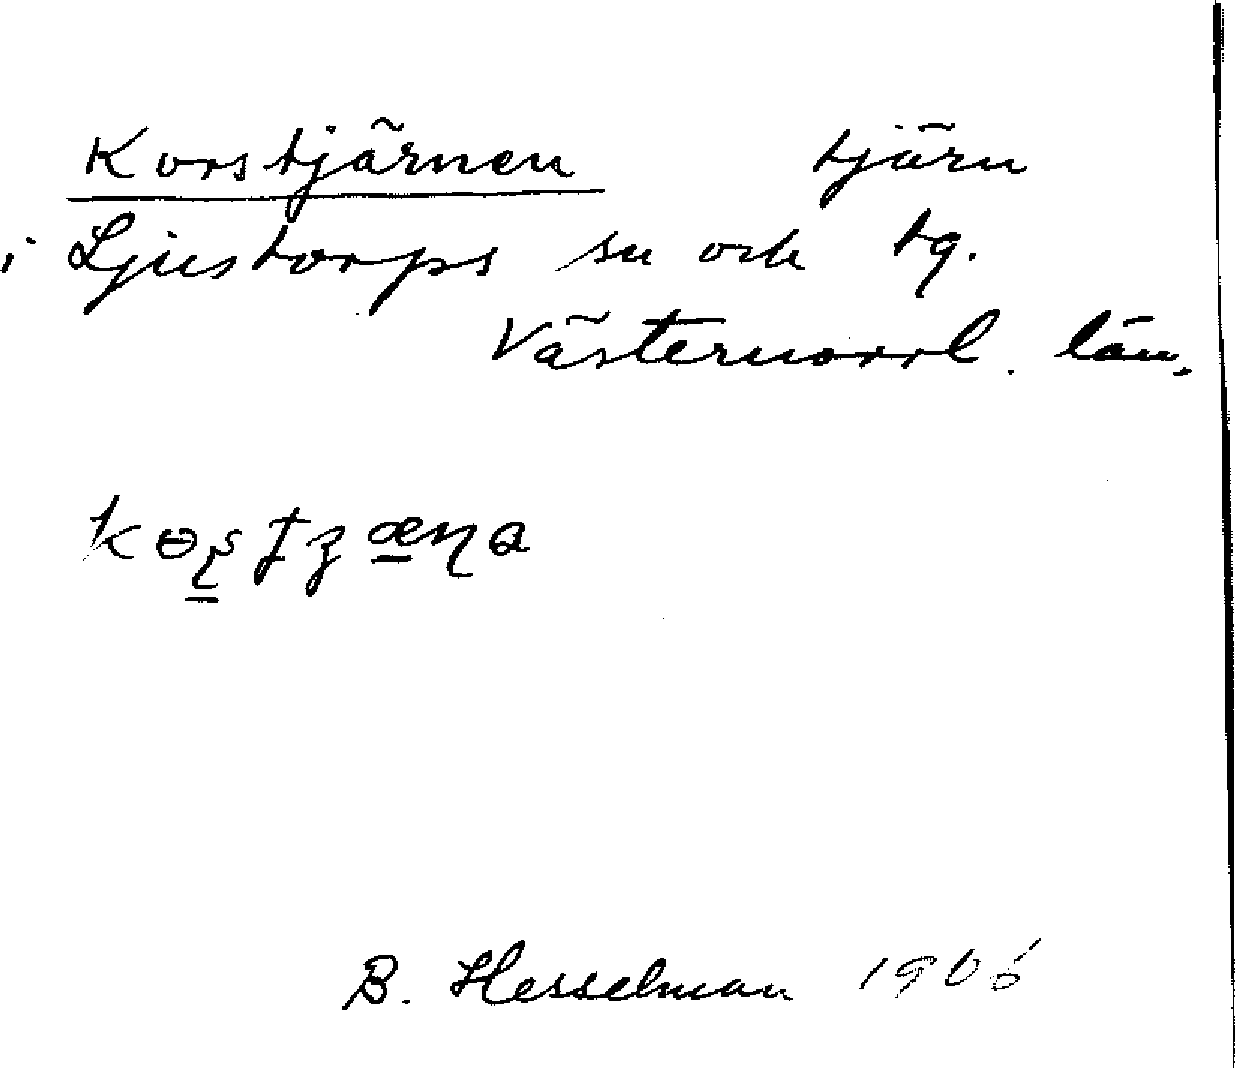 Korstjärnen tjärn
i Ljustorps sn och tg.
Västernorrl. län.
B. Hesselman 1906